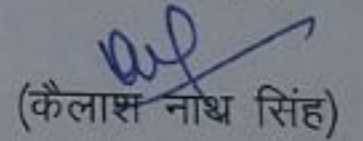 (कैलाश नाथ सिंह)